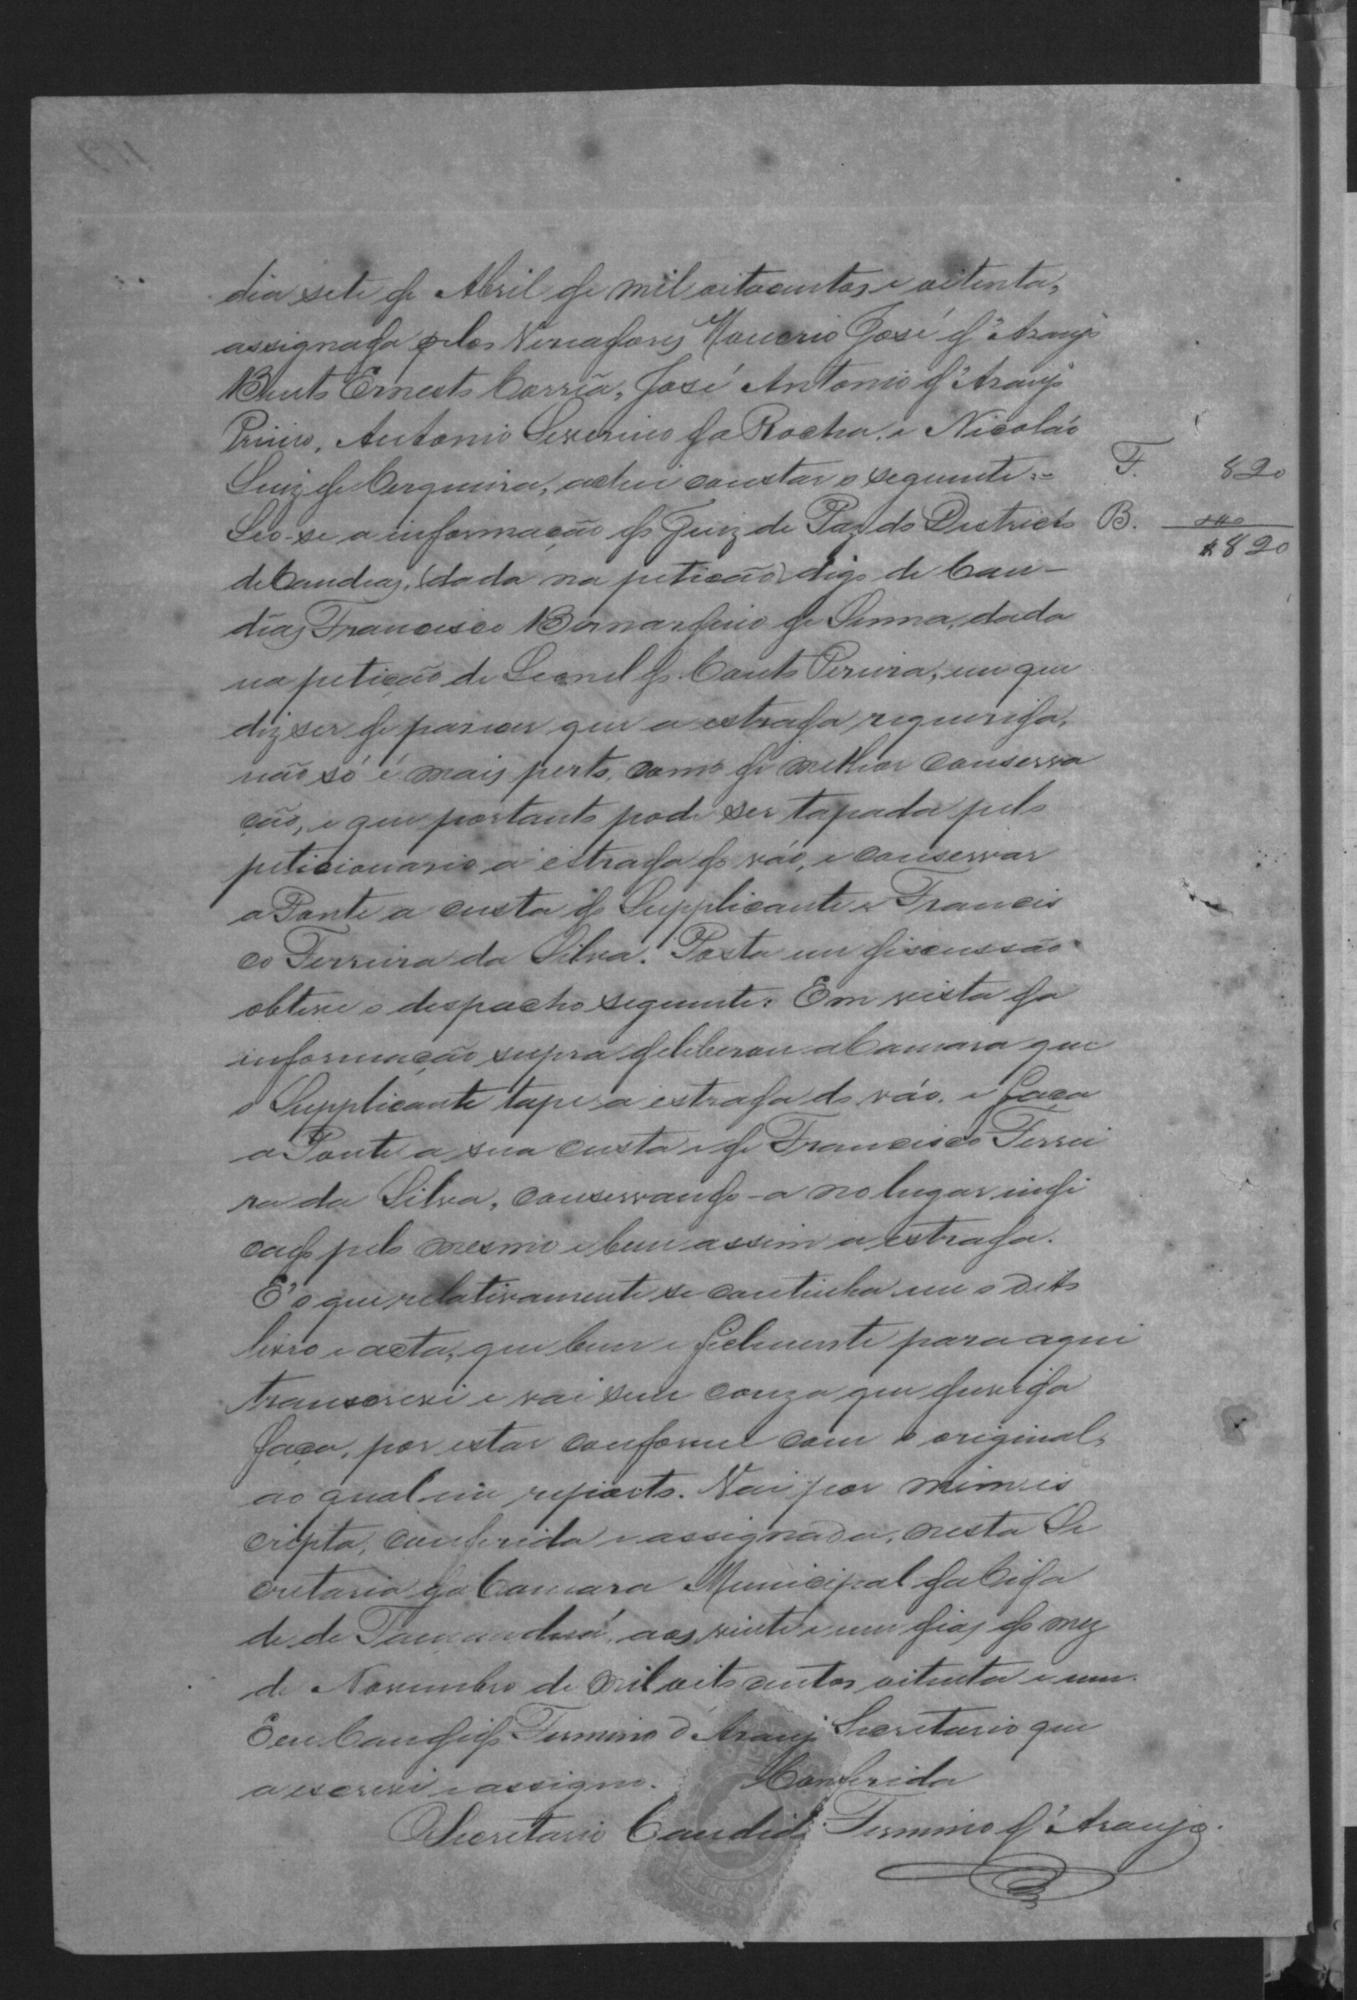 dia sete de Abril de mil oitocentos e oitenta,
assignada pelos Vereadores Honorio José d'Araujo
Bento Ernesto Corrêa, José Antonio d'Araujo
Primo, Antonio Severino da Rocha, e Nicoláo
Luiz de Cerqueira, achei constar o seguinte:=
F. 820
Leo-se a informação do Juiz de Paz do Districto
B.
$820
de Candeas, (dada na petição) digo de Can-
dêas Francisco Bernardino de Senna, dada
na petição de Leonel do Couto Pereira, em que
diz ser de parecer que a estrada requerida,
não só é mais perto, como de melhor conserva
ção, e que portanto pode ser tapada pelo
peticionario a estrada do váo, e conservar
a Ponte a custa do Supplicante e Francis
co Ferreira da Silva. Posta em discussão
obteve o despacho seguinte: Em vista da
informação supra deliberou a Camara que
o Supplicante tape a estrada do váo, e faça
a Ponte a sua custa e de Francisco Ferrei
ra da Silva, conservando-a no lugar indi
cado pelo mesmo e bem assim a estrada.
É o que relativamente se continha em o dito
livro e acta, que bem e fielmente para aqui
transcrevi e vai sem couza que duvida
faça, por estar conforme com o original,
ao qual me reporto. Vai por mim es
cripta, conferida e assignada, nesta Se
cretaria da Camara Municipal da Cida
de de Tamanduá, aos vinte e um dias do mez
de Novembro de mil oito centos oitenta e um.
Eu Candido Firmino d'Araujo Secretario que
a escrevi e assigno. Conferida
O Secretario Candido Firmino d'Araujo.